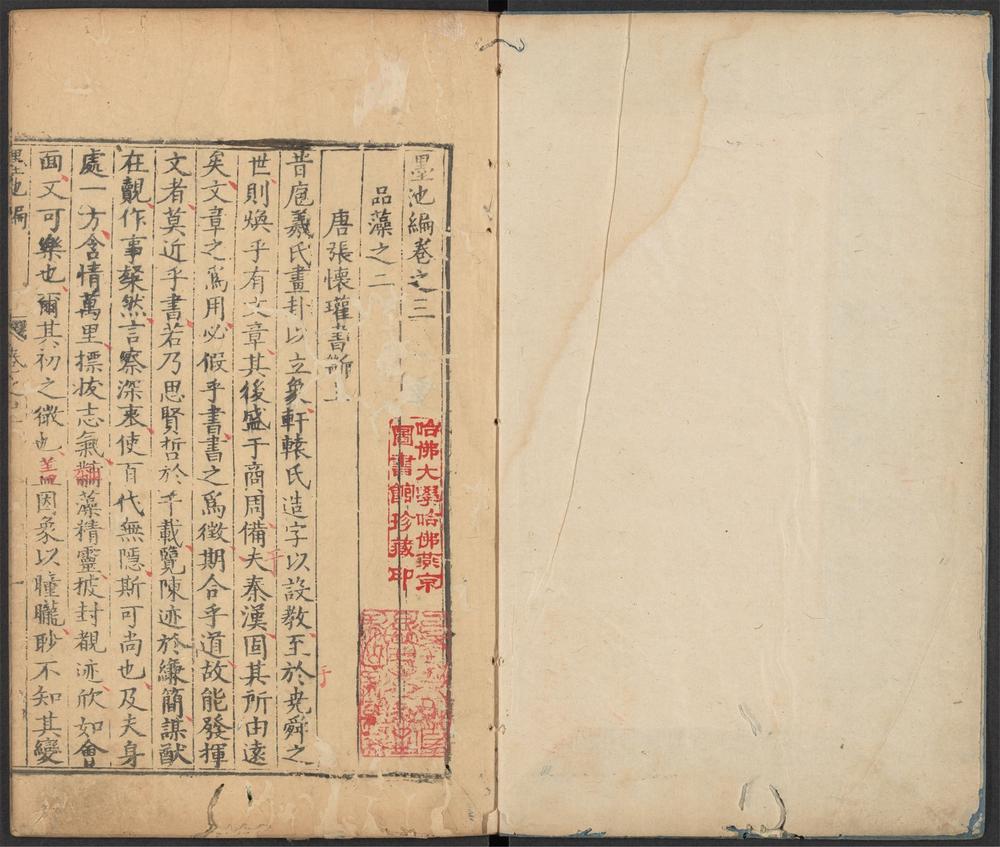 墨池編卷之三
品藻之二
唐張懷瓘書斷上
昔庖羲氏畫卦以立象軒轅氏造字以設教至於堯舜之
世則煥乎有文章其後盛于商周備夫秦漢固其所由遠
矣文章之爲用必假乎書書之爲徵期合乎道故能發揮
文者莫近乎書若乃思賢哲於千載覽陳迹於縑簡謀猷
在覿作事粲然言察深衷使百代無隱斯可尚也及夫身
處一方含情萬里摽拔志氣黼藻精靈披封覩迹欣如會
面又可樂也爾其初之微也蓋因象以瞳朧眇不知其變
墨池編 卷之三 一
哈佛大學哈佛燕京
圖書館珍藏印
于
于